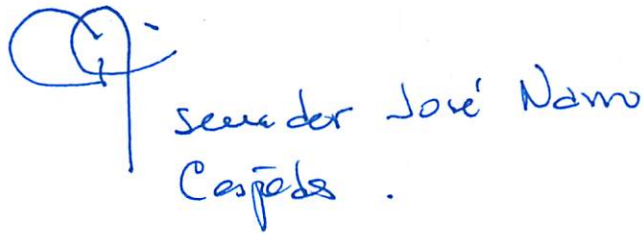 senador José Namo
Céspedes.